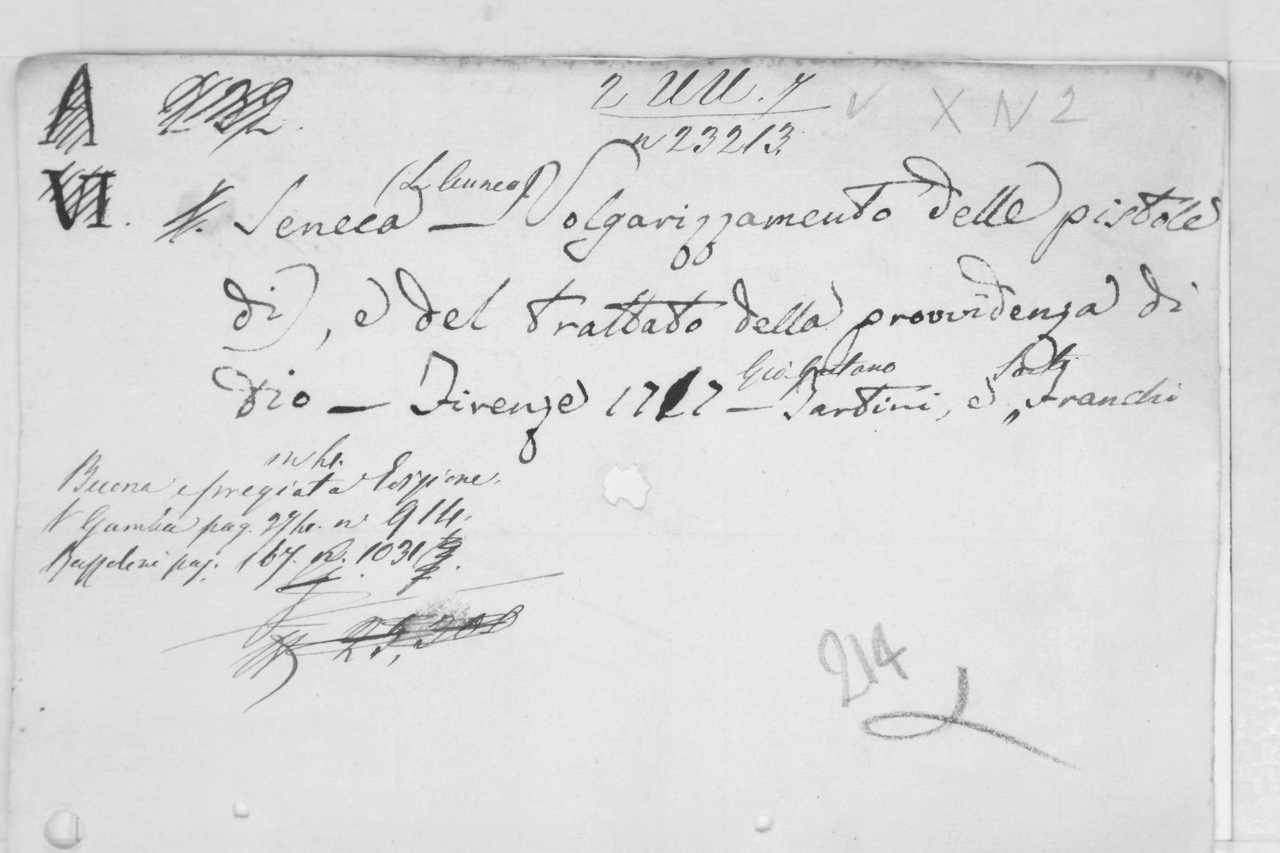 A 232. 2 UU. 7 v X N 2
n 23213.
VI. (L. Anneo)
Seneca — Volgarizzamento delle pistole
di), e del trattato della provvidenza di
Gio. Gaetano
Dio — Firenze 1717 — Tartini, e Franchi
Buona e pregiata Edizione.
V Gamba pag. n. 914.
pag. 167. n. 1031
25,308
214